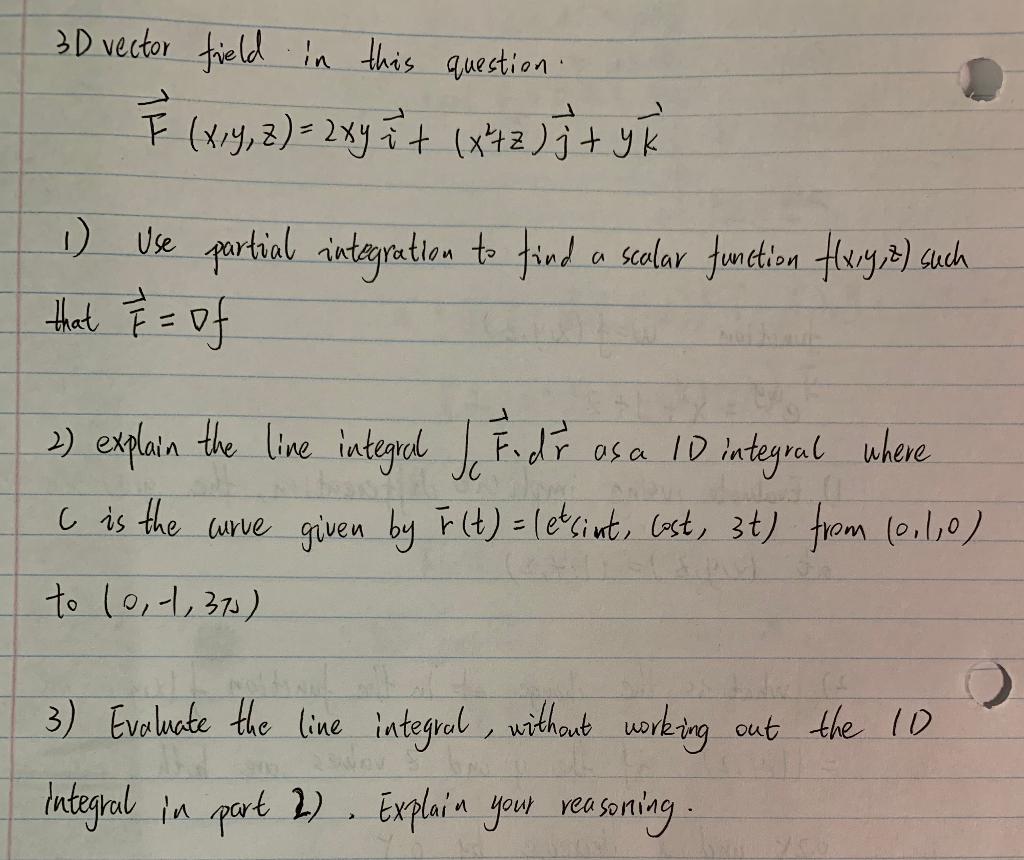 3D vector field in this question.
F⃗ (x,y,z) = 2xy i⃗ + (x²+z) j⃗ + y k⃗
1) Use partial integration to find a scalar function f(x,y,z) such
that F⃗ = ∇f
2) explain the line integral ∫_C F⃗ · dr⃗ as a 1D integral where
C is the curve given by r⃗(t) = (eᵗsint, Cost, 3t) from (0,1,0)
to (0,-1,3π)
3) Evaluate the line integral, without working out the 1D
integral in part 2). Explain your reasoning.